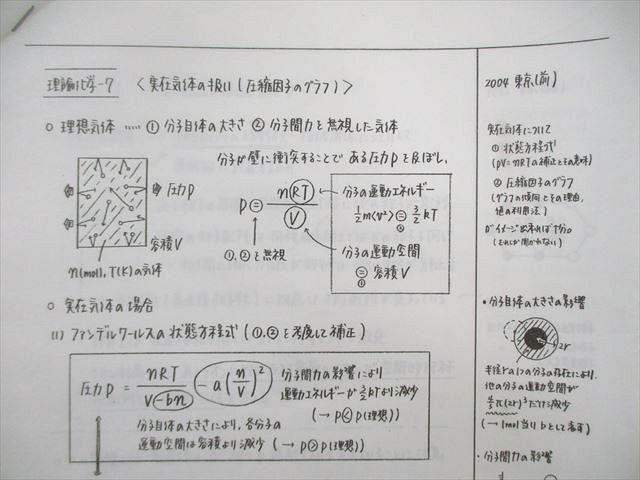 理論化学-7 〈実在気体の扱い(圧縮因子のグラフ)〉
○ 理想気体 ‥‥ ① 分子自体の大きさ ② 分子間力を無視した気体
分子が壁に衝突することで ある圧力Pを及ぼし、
圧力P
容積V
n(mol), T(K)の気体
P = nRT / V
①,②を無視
分子の運動エネルギー
½m⟨v²⟩ = 3/2 kT
②
分子の運動空間
= 容積V
①
○ 実在気体の場合
(1) ファンデルワールスの状態方程式 (①,②を考慮して補正)
圧力P = nRT / V-bn - a(n/V)²
分子間力の影響により
運動エネルギーが 3/2 kTより減少
(→ P<P(理想))
分子自体の大きさにより、各分子の
運動空間は容積より減少 (→ P>P(理想))
2004 東京(前)
実在気体について
① 状態方程式
(PV=nRTの補正とその意味)
② 圧縮因子のグラフ
(グラフの傾向とその理由,
値の利用法)
がイメージ出来れば十分。
(それしか聞かれない)
・分子自体の大きさの影響
2r
半径rの1つの分子の存在により、
他の分子の運動空間が
4/3π(2r)³だけ減少
(→ 1mol当りbとして表す)
・分子間力の影響